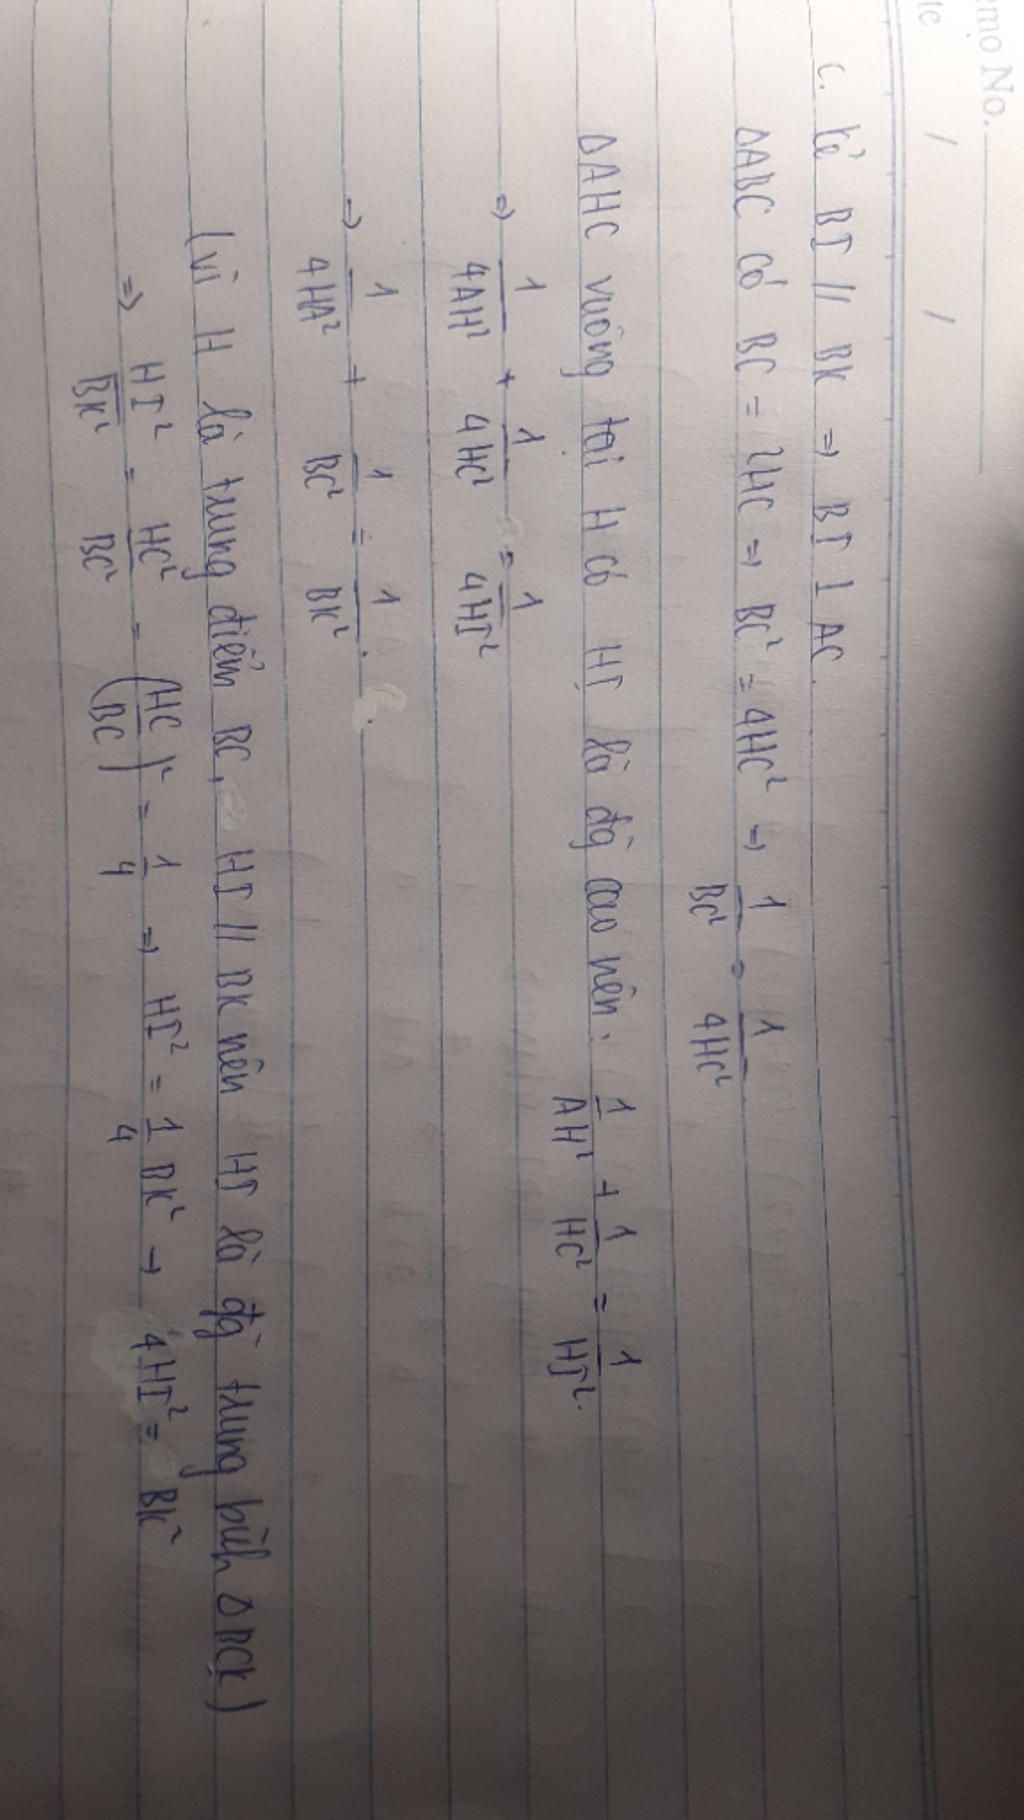 emo No.
te / /
c. kẻ BI // BK => BI ⊥ AC.
ΔABC có BC = 2HC => BC² = 4HC² => 1/BC² = 1/4HC²
ΔAHC vuông tại H có HI là đg cao nên. 1/AH² + 1/HC² = 1/HI².
=> 1/4AH² + 1/4HC² = 1/4HI²
=> 1/4HA² + 1/BC² = 1/BK².
(vì H là trung điểm BC, HI // BK nên HI là đg trung bình ΔBCK)
=> HI²/BK² = HC²/BC² = (HC/BC)² = 1/4 => HI² = 1/4 BK² → 4HI² = BK²